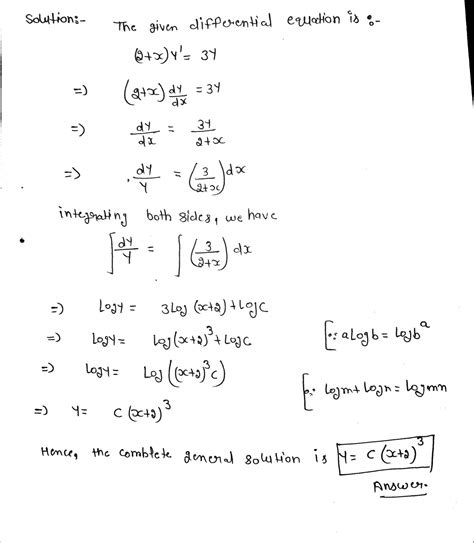 Solution:- The given differential equation is :-
(2+x)y' = 3y
=) (2+x) dy/dx = 3y
=) dy/dx = 3y/2+x
=) dy/y = (3/2+x) dx
integrating both sides, we have
∫ dy/y = ∫ (3/2+x) dx
=) Logy = 3Log (x+2) + logc
=) Logy = Log (x+2)^3 + Logc [∵ aLogb = Logb^a
=) Logy = Log ((x+2)^3 c) [∵ Logm + Logn = Logmn
=) y = c (x+2)^3
Hence, the comblete general solution is y = c (x+2)^3
Answer.